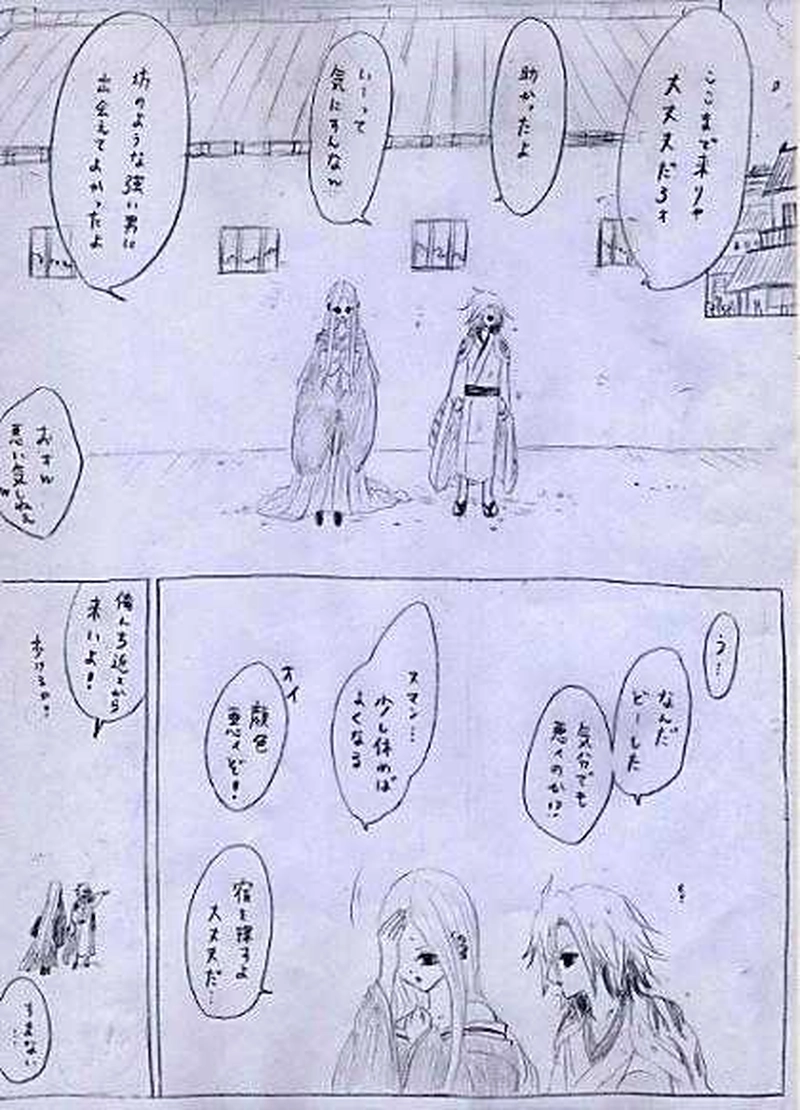 ここまで来りゃ
大丈夫だろォ
助かったよ
いーって
気にすんなw
坊のような強い男に
出会えてよかったよ
おすw
悪い気しねぇ
w
う…
なんだ
どーした
気分でも
悪イのか!?
スマン…
少し休めば
よくなる
オイ
顔色
悪イぞ!
宿を探すよ
大丈夫だ…
俺んち近ェから
来いよ!
歩けるか?
すまない
…